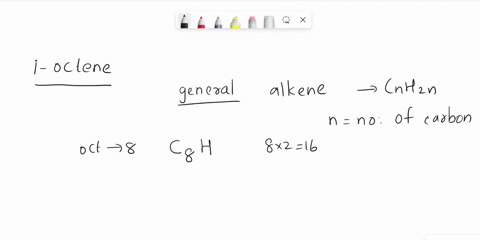 1-octene
general alkene → CnH2n
n = no: of carbon
oct → 8 C8H 8×2=16